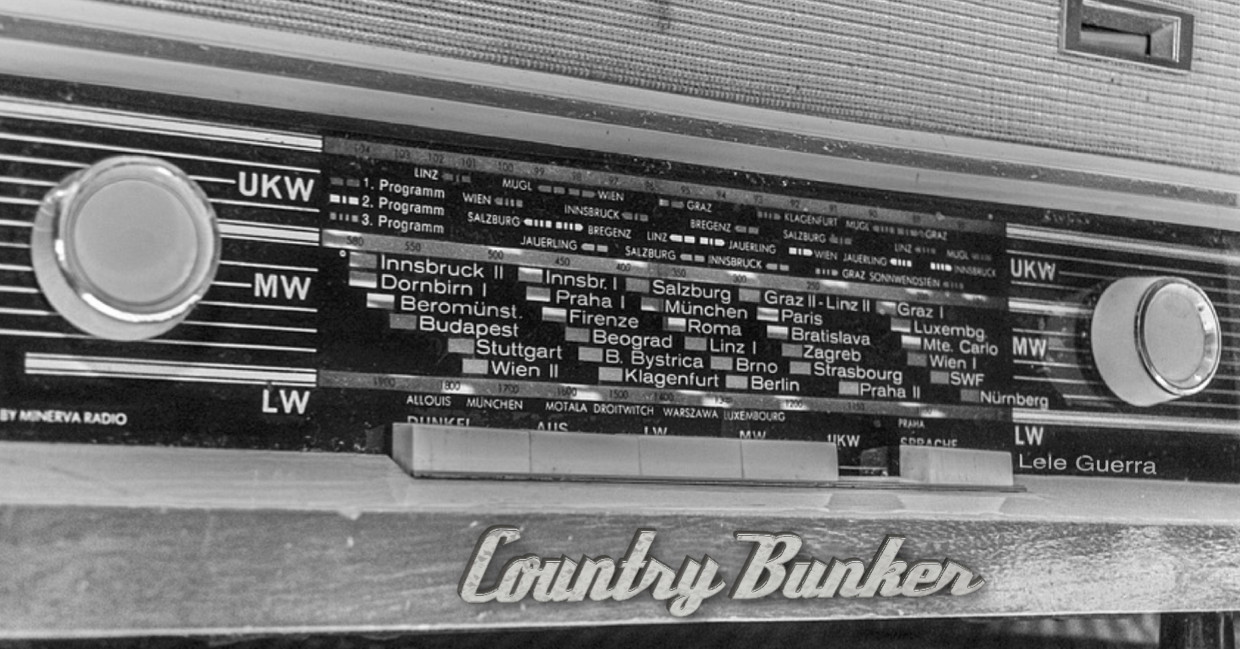 UKW
MW
LW
BY MINERVA RADIO
104 103 102 101 100 99 98 97 96 95 94 93 92 91
LINZ MUGL WIEN GRAZ KLAGENFURT MUGL GRAZ
1. Programm WIEN INNSBRUCK BREGENZ SALZBURG LINZ MUGL
2. Programm SALZBURG BREGENZ LINZ JAUERLING WIEN JAUERLING INNSBRUCK
3. Programm JAUERLING SALZBURG INNSBRUCK GRAZ SONNWENDSTEIN
580 550 500 450 400 350 300 250
Innsbruck II Innsbr. I Salzburg Graz II - Linz II Graz I
Dornbirn I Praha I München Paris Luxembg.
Beromünst. Firenze Roma Bratislava Mte. Carlo
Budapest Beograd Linz I Zagreb Wien I
Stuttgart B. Bystrica Brno Strasbourg SWF
Wien II Klagenfurt Berlin Praha II Nürnberg
1900 1800 1700 1600 1500 1400 1200 1150
ALLOUIS MÜNCHEN MOTALA DROITWITCH WARSZAWA LUXEMBOURG PRAHA
DUNKEL AUS LW MW UKW SPRACHE
UKW
MW
LW
Lele Guerra
Country Bunker